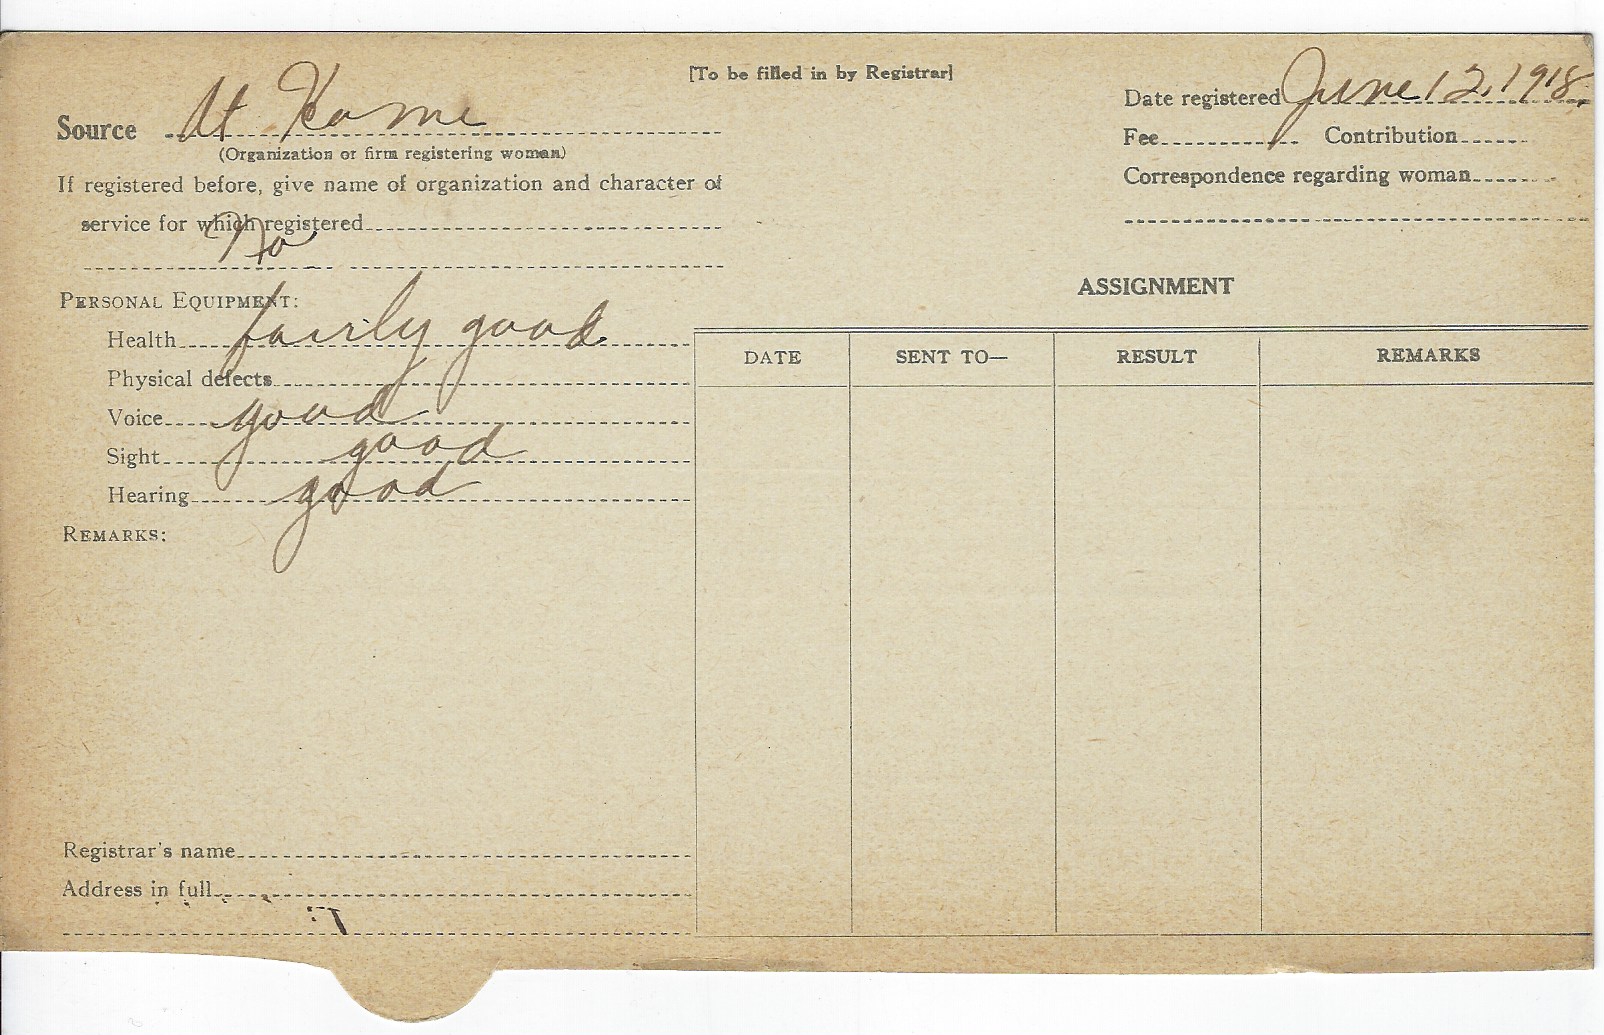 [To be filled in by Registrar]
Source At Home
(Organization or firm registering woman)
If registered before, give name of organization and character of
service for which registered
No
PERSONAL EQUIPMENT:
Health fairly good
Physical defects
Voice good
Sight good
Hearing good
REMARKS:
Registrar's name
Address in full
Date registered June 12, 1918.
Fee Contribution
Correspondence regarding woman
ASSIGNMENT
DATE SENT TO— RESULT REMARKS